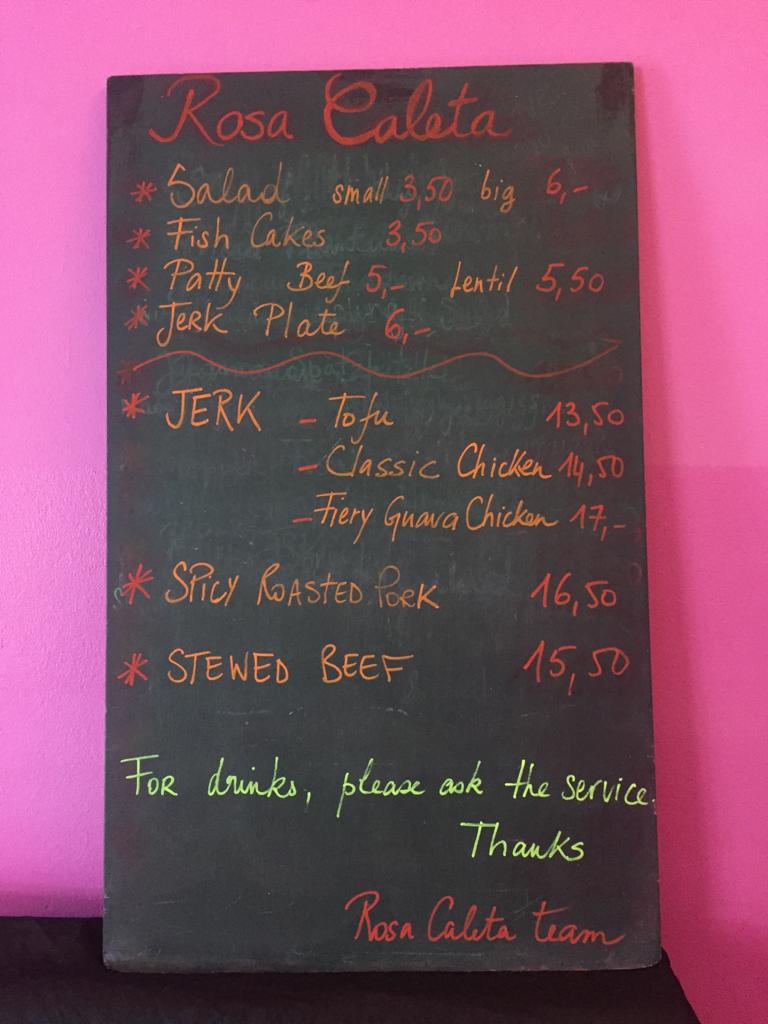 Rosa Caleta
* Salad small 3,50 big 6,-
* Fish Cakes 3,50
* Patty Beef 5,- Lentil 5,50
* Jerk Plate 6,-
* JERK - Tofu 13,50
- Classic Chicken 14,50
- Fiery Guava Chicken 17,-
* SPICY ROASTED PORK 16,50
* STEWED BEEF 15,50
For drinks, please ask the service.
Thanks
Rosa Caleta team